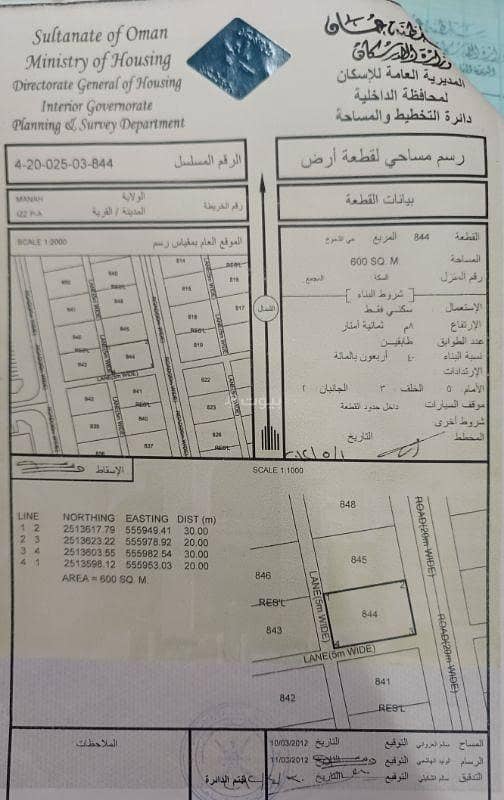 Sultanate of Oman
Ministry of Housing
Directorate General of Housing
Interior Governorate
Planning & Survey Department
المديرية العامة للإسكان
لمحافظة الداخلية
دائرة التخطيط والمساحة
4-20-025-03-844
الرقم المسلسل
رسم مساحي لقطعة أرض
MANAH
الولاية
المدينة / القرية
رقم الخريطة
بيانات القطعة
SCALE 1:2000
الموقع العام بمقياس رسم
القطعة
844
المربع
المساحة
600 SQ. M.
رقم المنزل
السكة
المجمع
شروط البناء
الإستعمال
سكني فقط
الإرتفاع
٨م
ثمانية أمتار
عدد الطوابق
طابقين
نسبة البناء
٤٠
أربعون بالمائة
الإرتدادات
الأمام
٥
الخلف
٣
الجانبان
٢
موقف السيارات
داخل حدود القطعة
شروط أخرى
المخطط
التاريخ
الشمال
814
RES'L
815
816
817
818
819
822
823
842
843
844
841
840
837
836
LANE(5m WIDE)
الإسقاط
SCALE 1:1000
LINE NORTHING EASTING DIST (m)
1 2 2513617.79 555949.41 30.00
2 3 2513623.22 555978.92 20.00
3 4 2513603.55 555982.54 30.00
4 1 2513598.12 555953.03 20.00
AREA = 600 SQ. M.
848
845
846
RES'L
843
844
LANE(5m WIDE)
LANE(5m WIDE)
ROAD(20m WIDE)
ROAD(20m WIDE)
842
841
RES'L
الملاحظات
المساح
التوقيع
التاريخ
10/03/2012
الرسام
التوقيع
التاريخ
11/03/2012
التدقيق
التوقيع
التاريخ
ختم الدائرة